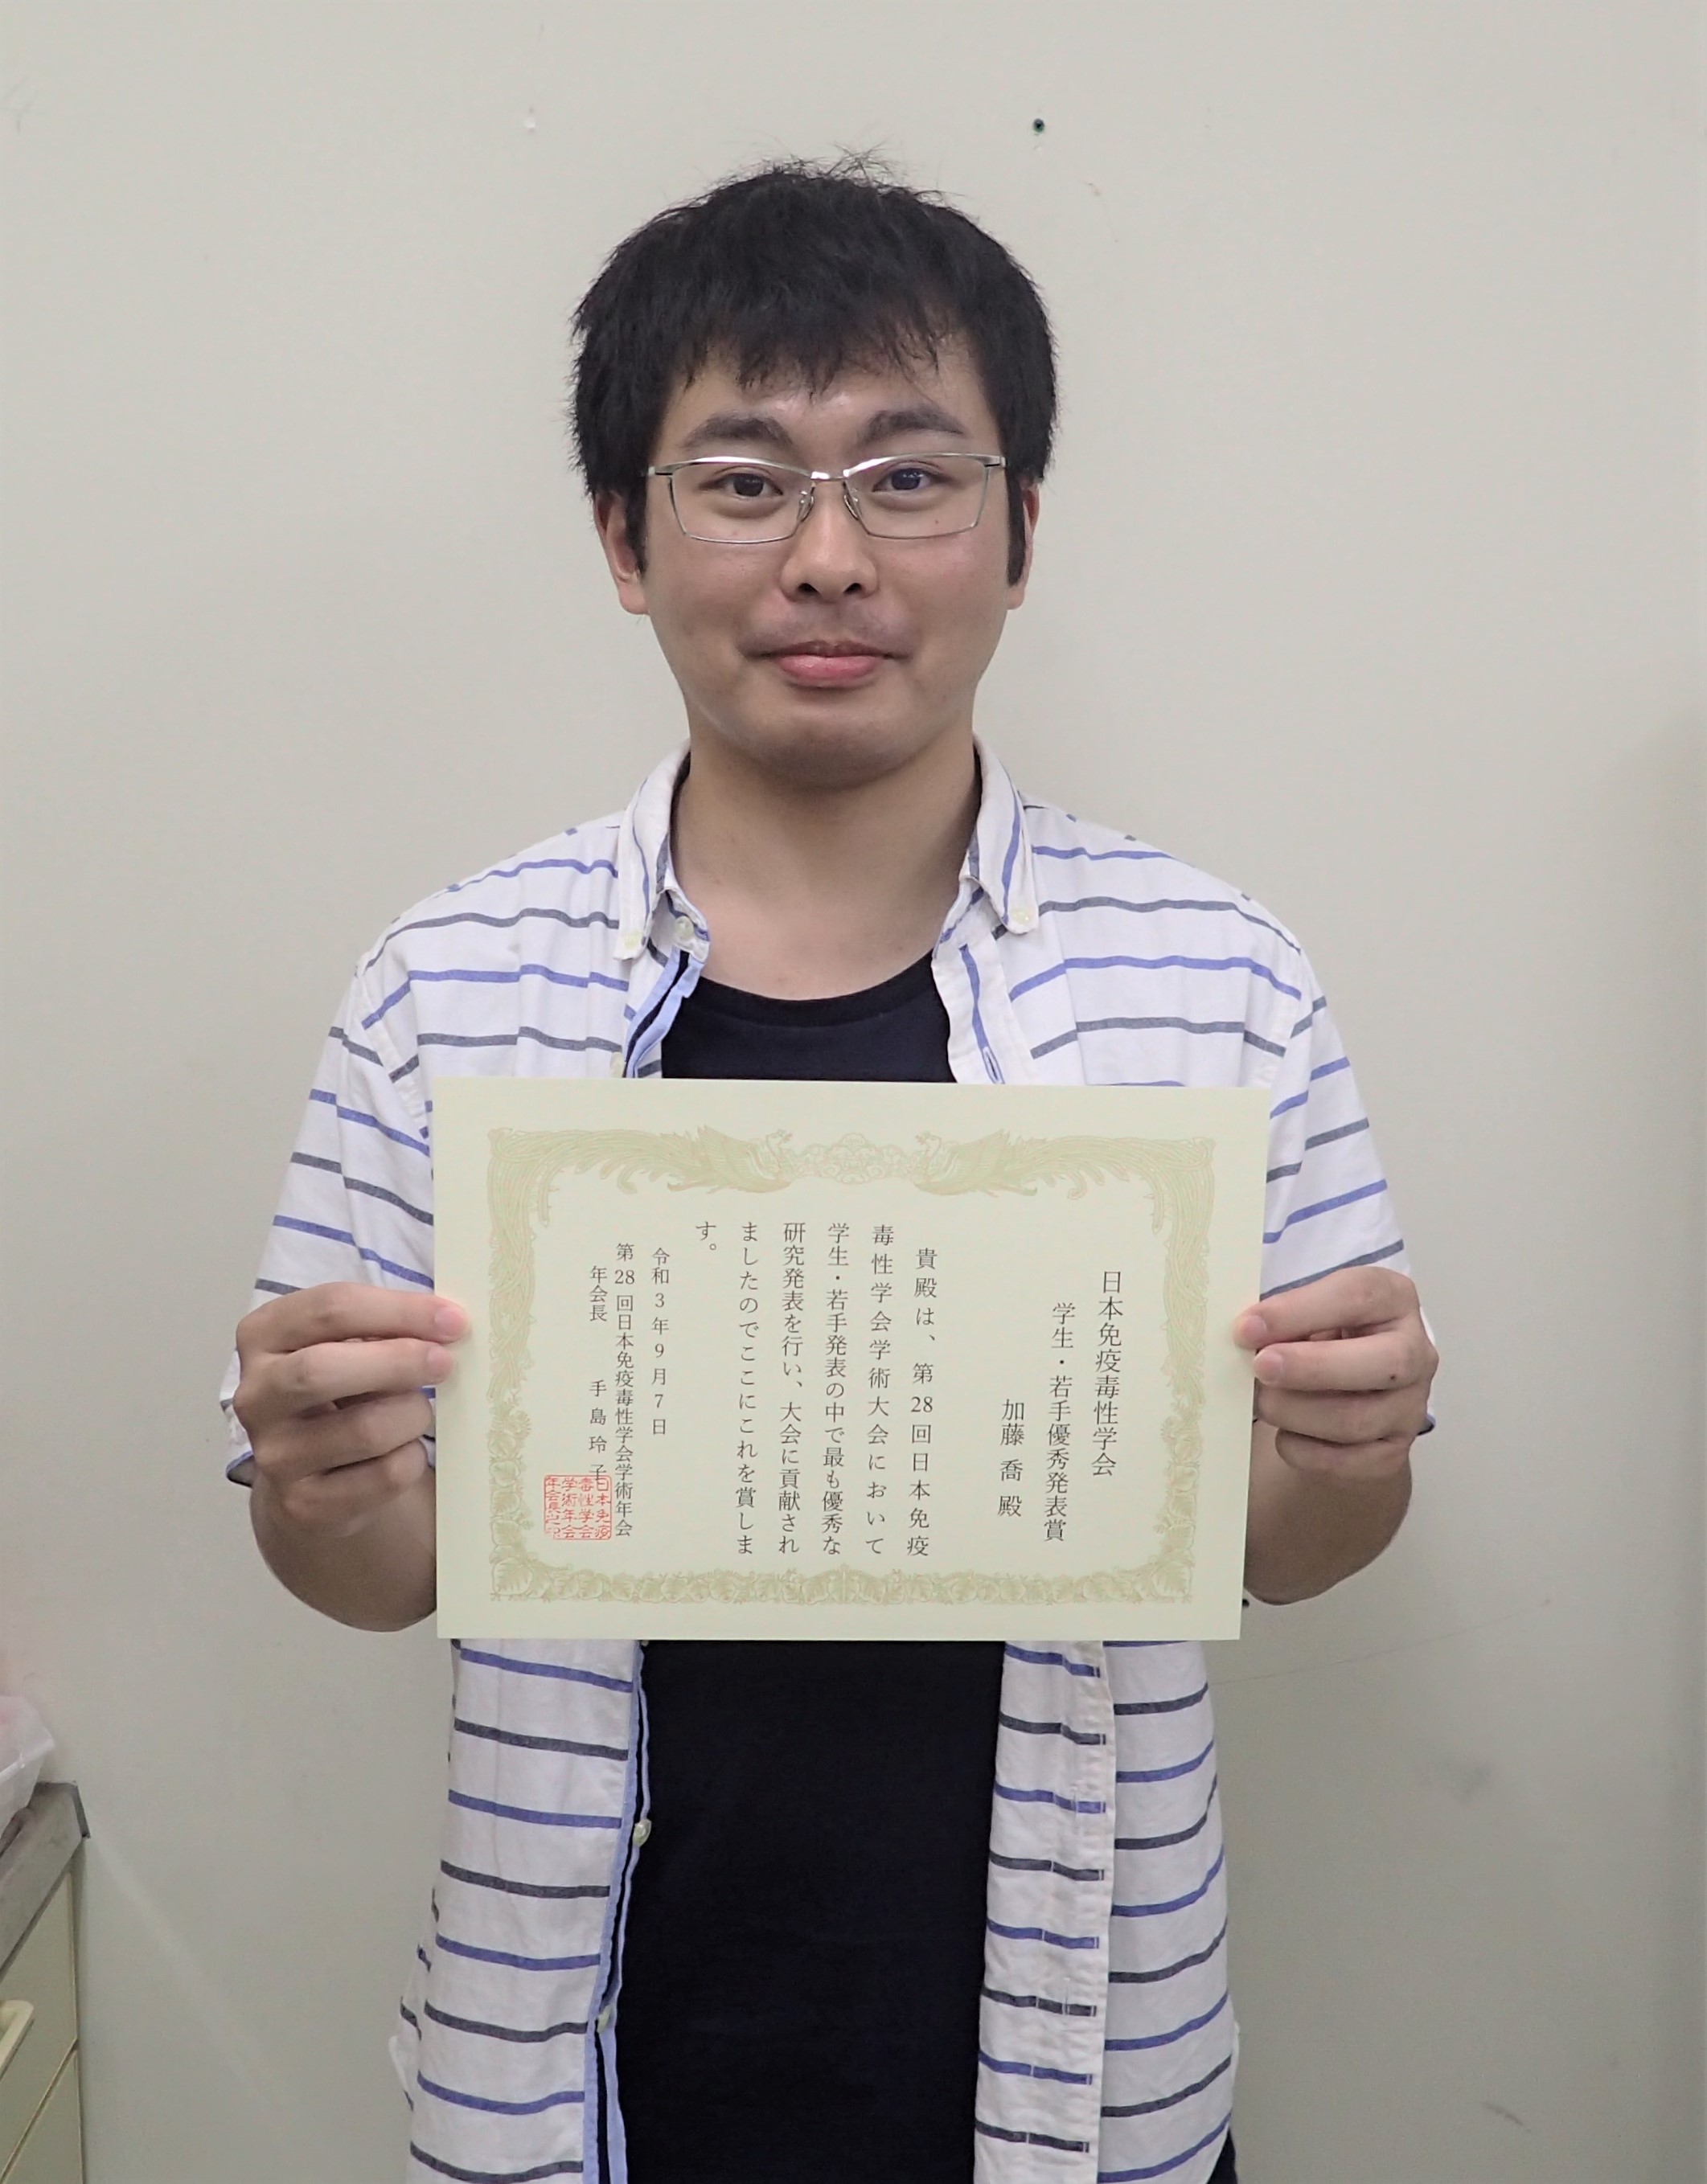 日本免疫毒性学会
学生・若手優秀発表賞
加藤 喬 殿
貴殿は、第28回日本免疫
毒性学会学術大会において
学生・若手発表の中で最も優秀な
研究発表を行い、大会に貢献され
ましたのでここにこれを賞しま
す。
令和3年9月7日
第28回日本免疫毒性学会学術年会
年会長 手島 玲子
日本免疫
毒性学会
学術年会